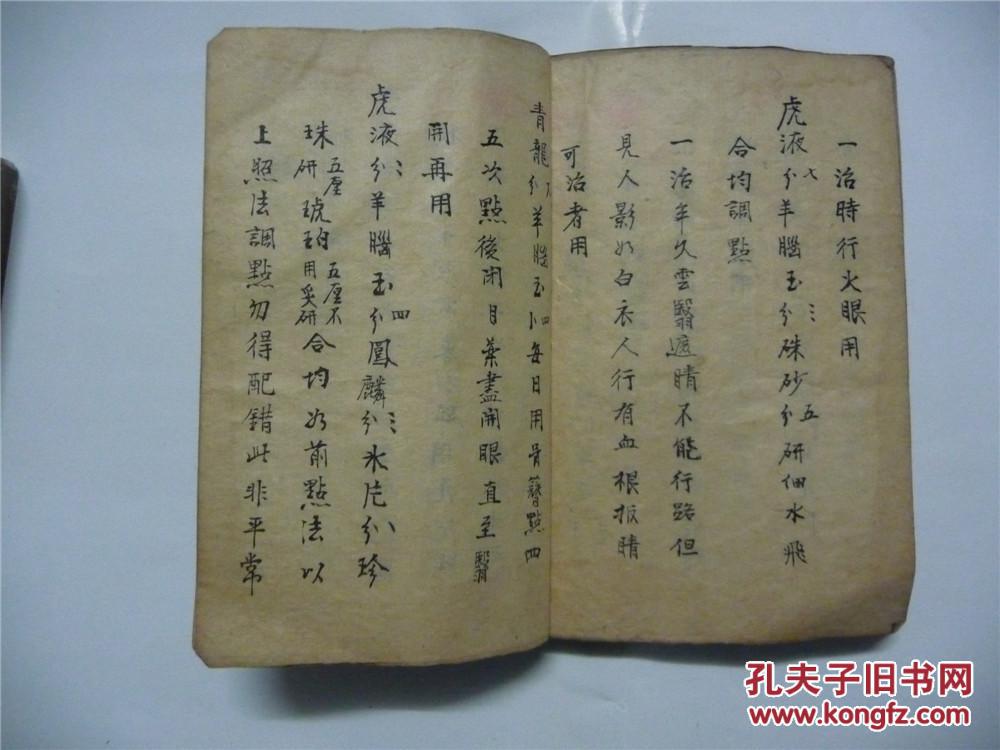 一治時行火眼用
虎液七分羊腦玉三分硃砂五分研細水飛
合均調點
一治年久雲翳遮睛不能行路但
見人影如白衣人行有血根扳睛
可治者用
青龍分羊腦玉四分每日用骨簪點四
五次點後閉目藥盡開眼直至翳
開再用
虎液二分羊腦玉四分鳳麟三分氷片八分珍
珠五厘研琥珀五厘不用炙研合均如前點法以
上照法調點勿得配錯此非平常
孔夫子旧书网
www.kongfz.com